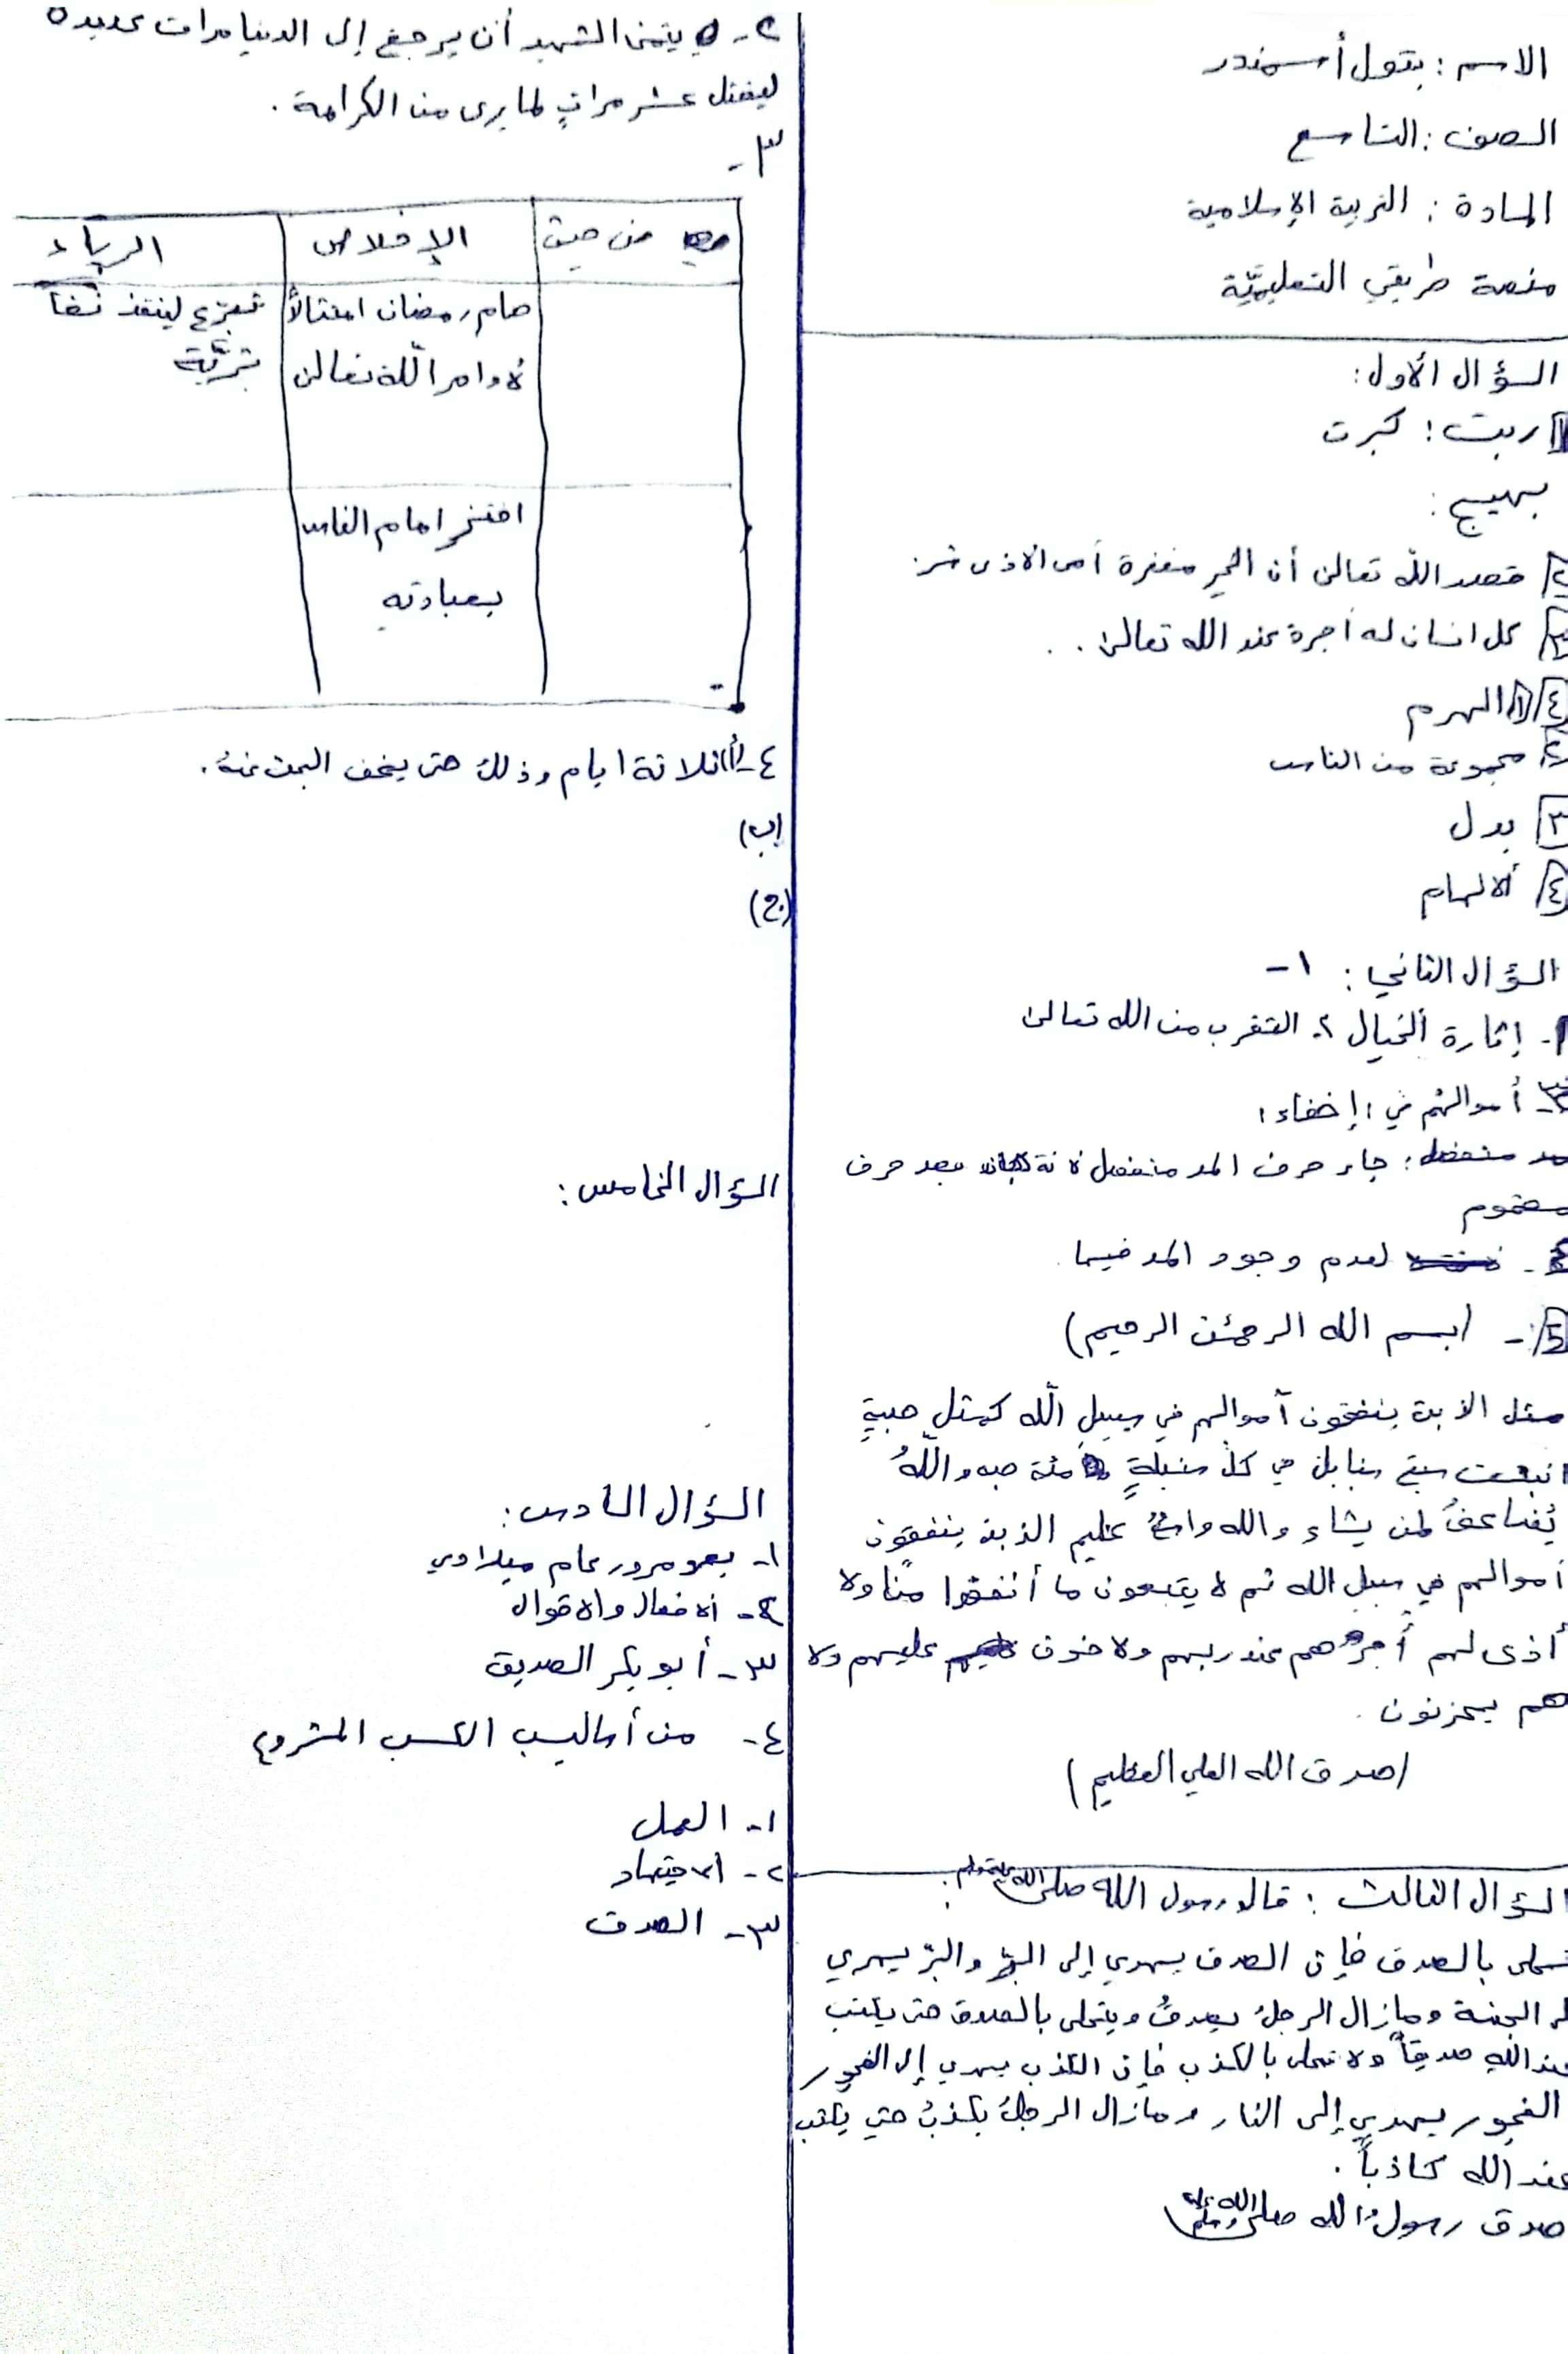 الاسم : بتول أسمندر
الصف : التاسع
المادة : التربية الإسلامية
منصة طريقي التعليميّة
السؤال الأول :
١ ربت : كبرت
بهيج :
٢ قصد الله تعالى أن الخير مغفرة أما الاذى شر
٣ كل انسان له أجرة عند الله تعالى . .
٤ ١ الهرم
٢ مجموعة من الناس
٣ بدل
٤ ألالهام
السؤال الثاني : ١-
١- إثارة ألخيال ٢- التقرب من الله تعالى
أموالهم في : إخفاء :
مد منفصل : جاء حرف المد منفصل لانة بعد حرف
مضموم
٤- لعدم وجود المد فيها
5 - (بسم الله الرحمٰن الرحيم)
مثل الذين ينفقون أموالهم في سبيل اللّه كمثلِ حبةٍ
انبعت سبع سنابل في كل سنبلةٍ مئة حبه واللّهُ
يُضاعفُ لمن يشاء والله واسعٌ عليم الذين ينفقون
أموالهم في سبيل الله ثم لا يتبعون ما أنفقوا منًا ولا
أذى لهم أجرهم عند ربهم ولا خوف عليهم ولا
هم يحزنون .
(صدق الله العلي العظيم)
السؤال الثالث : قال رسول الله صلى الله عليه وسلم :
بالصدق فإن الصدق يهدي إلى البرِّ والبرّ يهدي
الجنة ومازال الرجلُ يصدقُ ويتحلى بالصدق حتى يكتب
عند اللهِ صديقاً ولا تحلى بالكذب فإن الكذب يهدي إلى الفجور
الفجور يهدي إلى النار ومازال الرجلُ يكذبُ حتى يكتب
عند الله كاذباً .
صدق رسولُ الله صلى الله عليه وسلم
٢- يتمنى الشهيد أن يرجع إلى الدنيا مرات عديدة
ليقتل عشر مراتٍ لما يرى من الكرامة .
٣-
من حيث الإخلاص الرياء
صام رمضان امتثالاً تبرّع لينقذ نفساً
لاوامر اللّه تعالى بشريّة
افتخر امام الناس
بعبادتهِ
٤- أ) ثلاثة ايام وذلك حتى يخف البحث عنهُ .
(ب)
(ج)
السؤال الخامس :
السؤال السادس :
١- بعد مرور عام ميلادي
٢- ألافعال والاقوال
٣- أبو بكر الصديق
٤- من أساليب الكسب المشروع
١- العمل
٢- ألاجتهاد
٣- الصدق